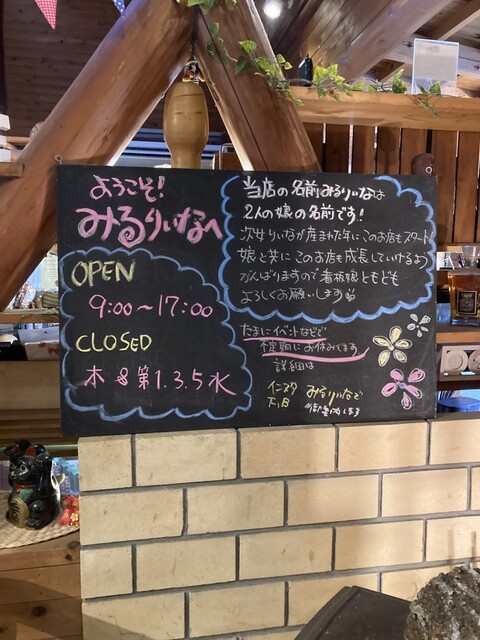 ようこそ!
みるりぃなへ
OPEN
9:00〜17:00
CLOSED
木 & 第1.3.5水
当店の名前みるりぃなは
2人の娘の名前です!
次女りぃなが産まれた年にこのお店もスタート
娘と共にこのお店も成長していけるよう
がんばりますので看板娘ともども
よろしくお願いします
たまにイベントなどで
不定期にお休みです
詳細は
インスタ みるりぃなで